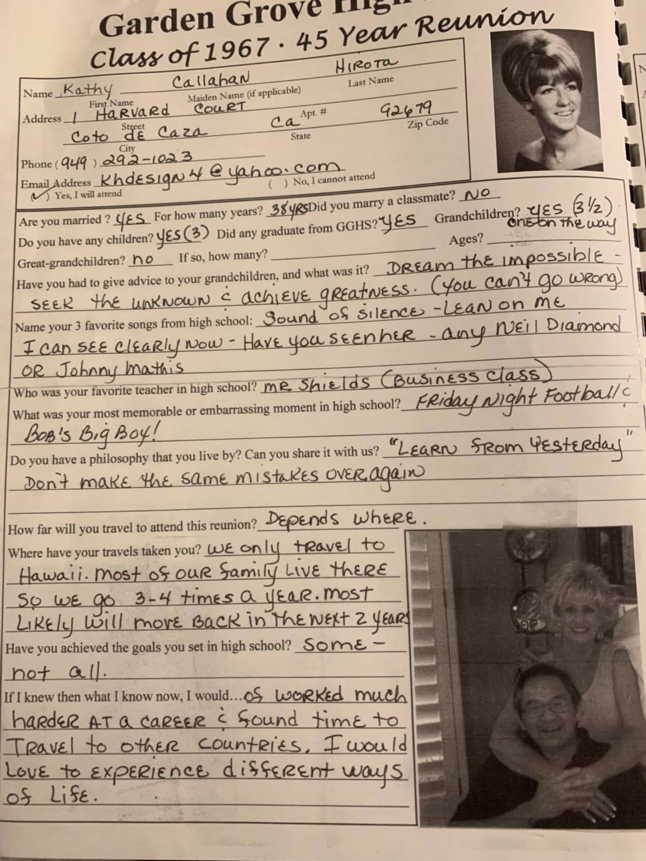 Garden Grove High
Class of 1967 · 45 Year Reunion
Name Kathy Callahan Hirota
First Name Maiden Name (if applicable) Last Name
Address 1 Harvard Court 92679
Street Apt. # Zip Code
Coto de Caza Ca
City State
Phone (949) 292-1023
Email Address Khdesign4@yahoo.com
(✓) Yes, I will attend ( ) No, I cannot attend
Are you married? yes For how many years? 38 yrs Did you marry a classmate? No
Do you have any children? yes (3) Did any graduate from GGHS? yes Grandchildren? yes (3 1/2)
one on the way
Great-grandchildren? no If so, how many? Ages?
Have you had to give advice to your grandchildren, and what was it? Dream the impossible -
seek the unknown & achieve greatness. (you can't go wrong)
Name your 3 favorite songs from high school: Sound of silence - Lean on me
I can see clearly now - Have you seen her - any Neil Diamond
or Johnny Mathis
Who was your favorite teacher in high school? mr Shields (Business class)
What was your most memorable or embarrassing moment in high school? Friday Night Football &
Bob's Big Boy!
Do you have a philosophy that you live by? Can you share it with us? "Learn from yesterday"
Don't make the same mistakes over again
How far will you travel to attend this reunion? Depends where.
Where have your travels taken you? we only travel to
Hawaii. most of our family live there
so we go 3-4 times a year. most
likely will move back in the next 2 years
Have you achieved the goals you set in high school? some -
not all.
If I knew then what I know now, I would... of worked much
harder at a career & found time to
travel to other countries. I would
love to experience different ways
of life.